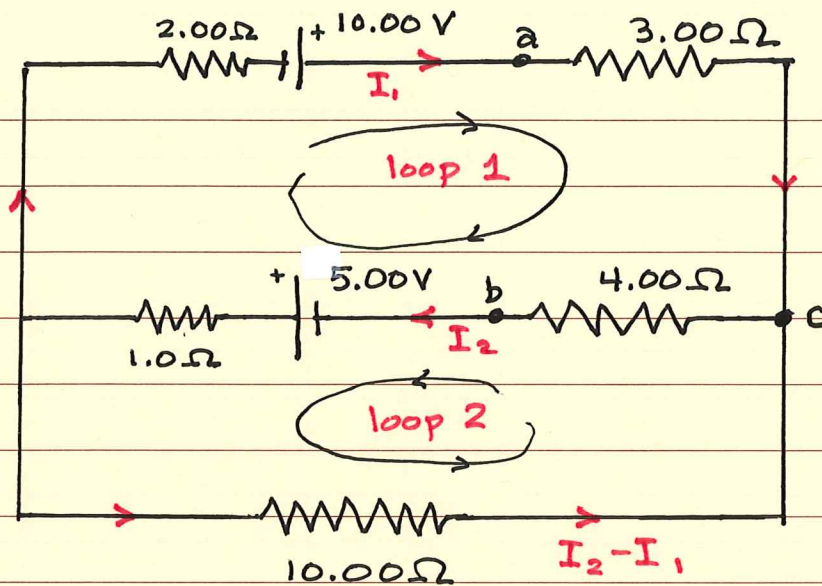 2.00Ω + 10.00 V a 3.00Ω
I₁
loop 1
+ 5.00V b 4.00Ω c
1.0Ω I₂
loop 2
10.00Ω I₂-I₁